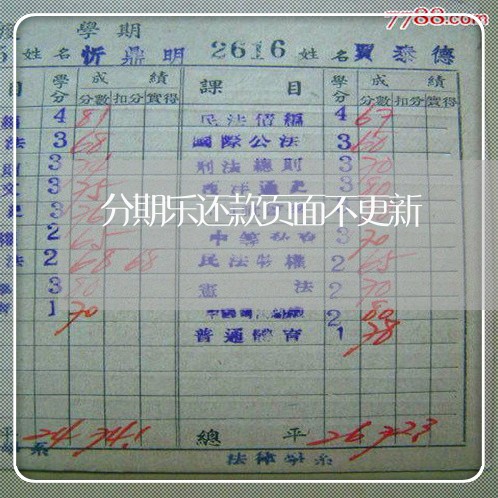 7788.com
學期
姓名 忻鼎明 2616 姓名 賈泰德
目 學分 成績 課目 學分 成績
分數 扣分 實得 分數 扣分 實得
4 81 民法債編 4 67
法 3 68 國際公法 3 60
3 刑法總則 3 70
3 75 西洋通史 3 80
分期乐还款页面不更新
2 65 3 70
法 2 68 68 民法物權 2 65
3 80 憲法 2 70
1 70 2 80
普通體育 1 78
平 24 74.1 總平 26 72.3
系 法律學系